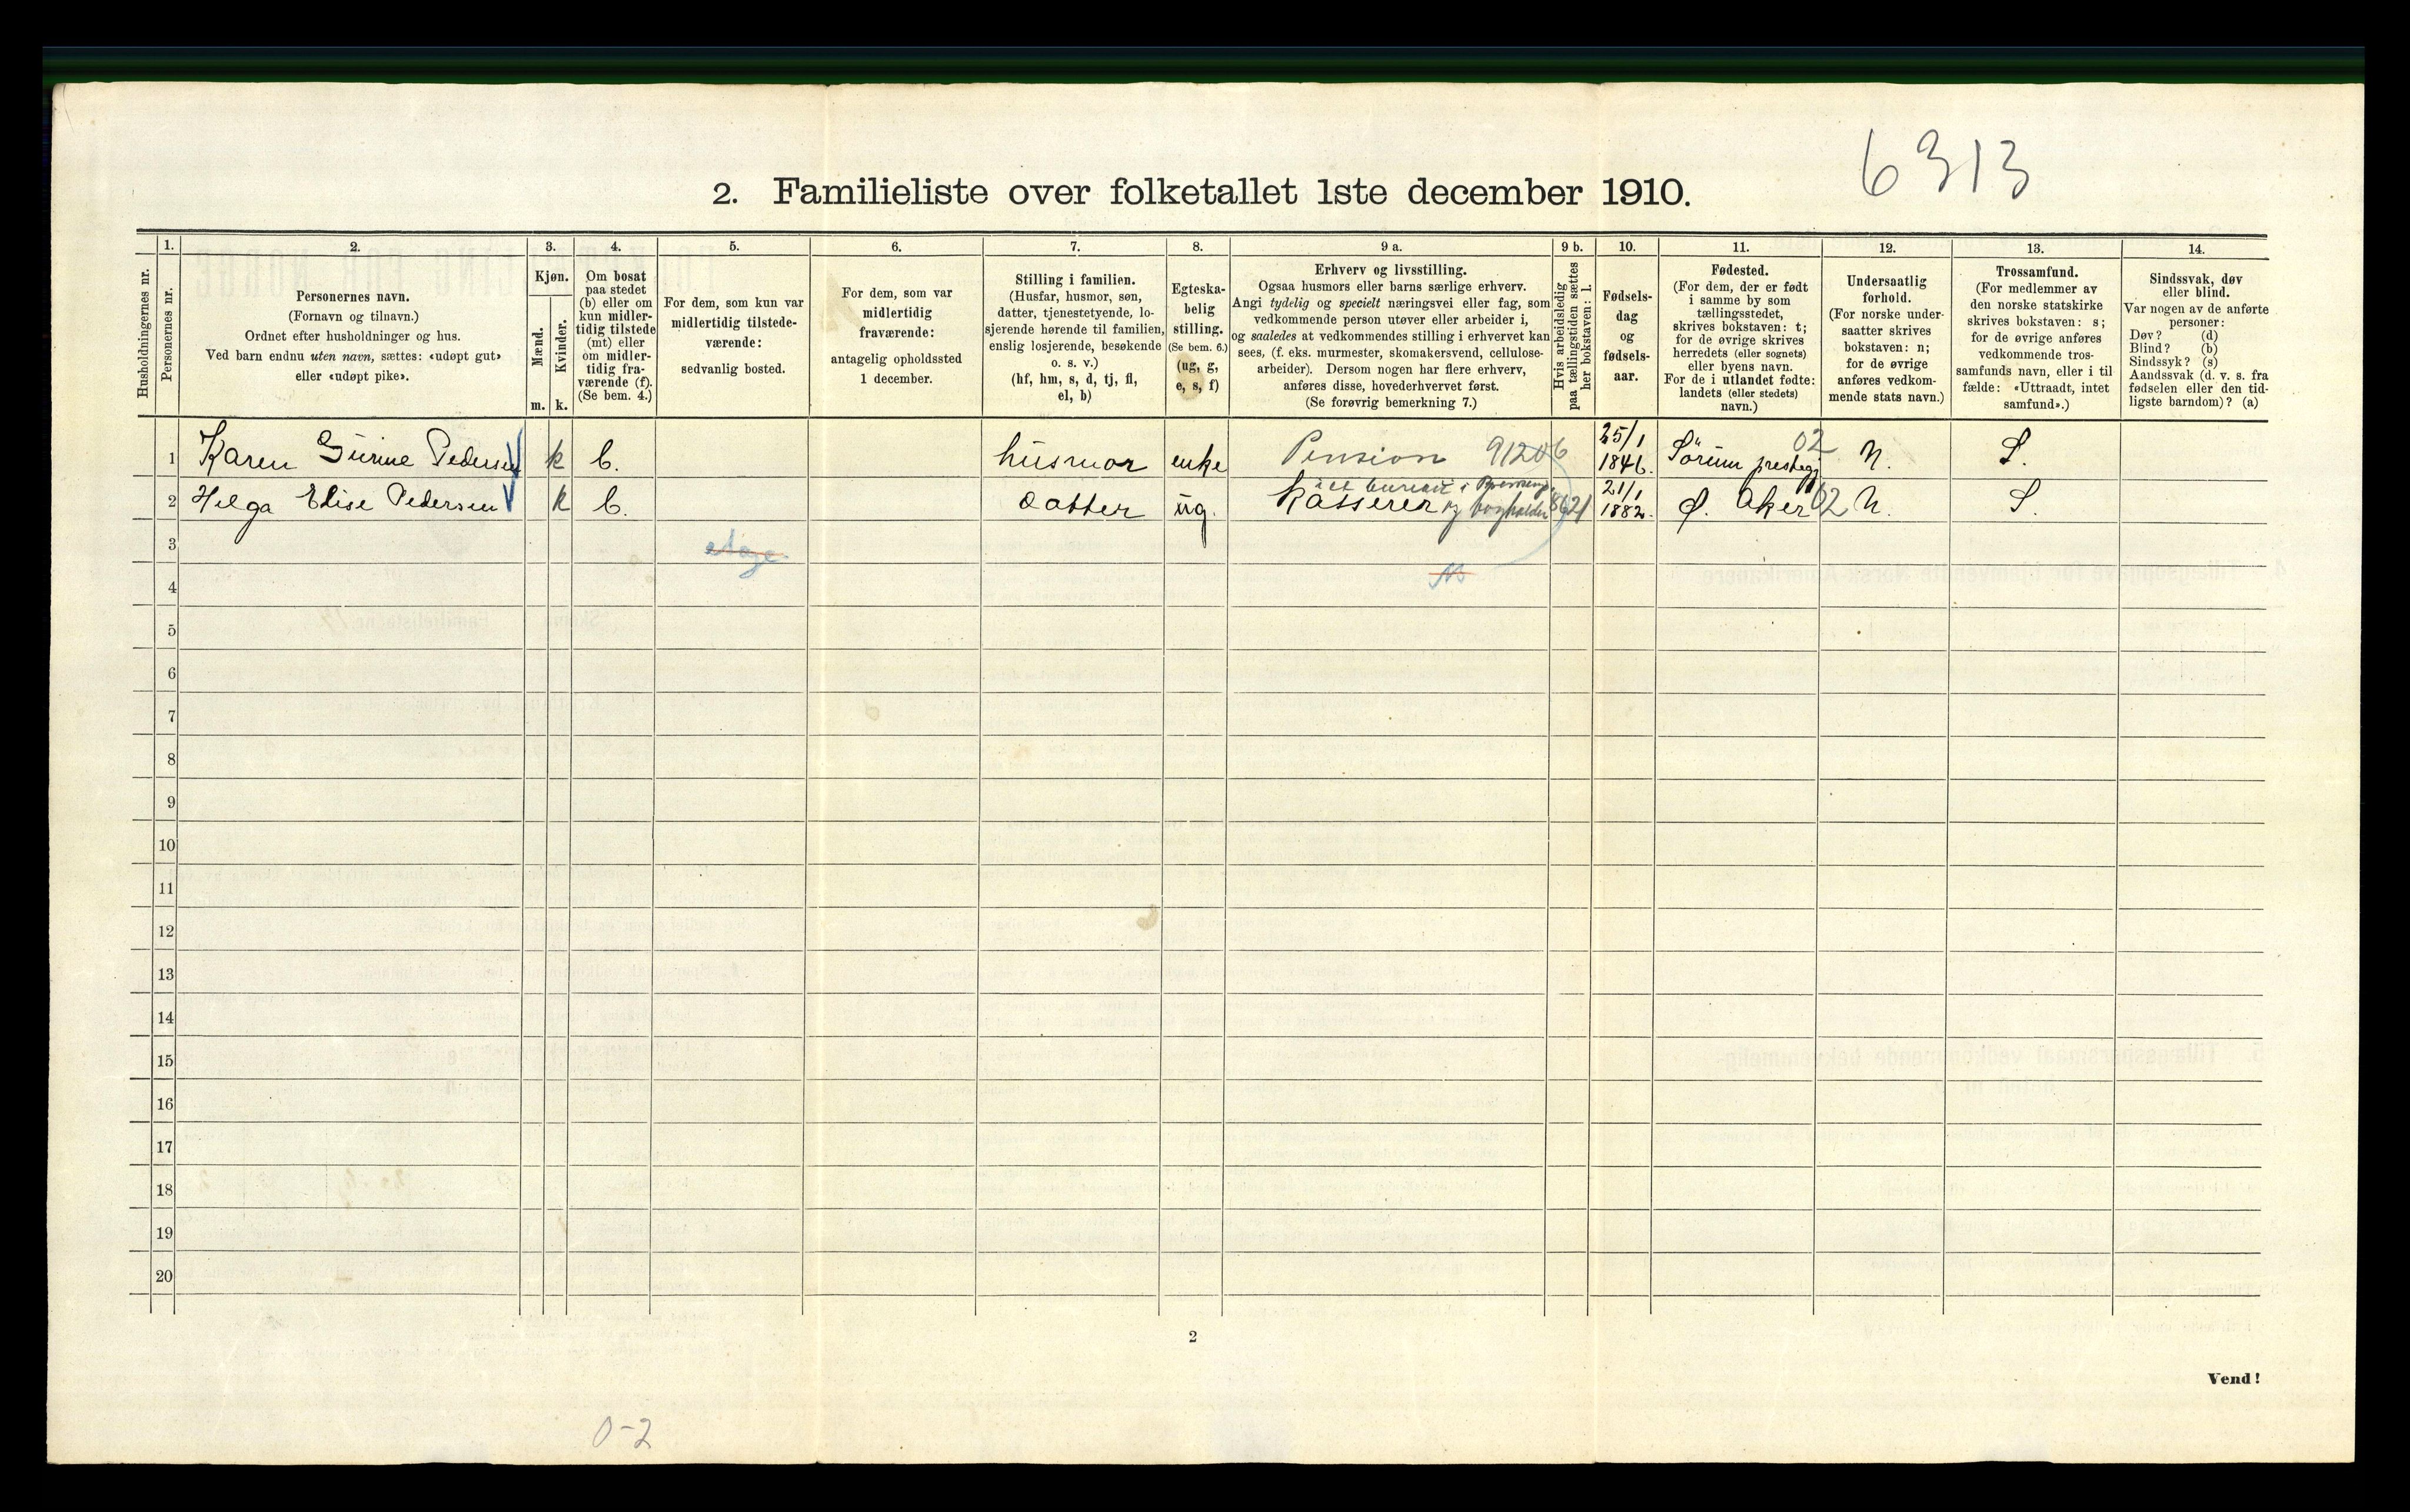 6313
2. Familieliste over folketallet 1ste december 1910.
Husholdningernes nr.
1.
Personernes nr.
2.
Personernes navn.
(Fornavn og tilnavn.)
Ordnet efter husholdninger og hus.
Ved barn endnu uten navn, sættes: «udøpt gut»
eller «udøpt pike».
3.
Kjøn.
Mænd.
Kvinder.
m. k.
4.
Om bosat
paa stedet
(b) eller om
kun midler-
tidig tilstede
(mt) eller
om midler-
tidig fra-
værende (f).
(Se bem. 4.)
5.
For dem, som kun var
midlertidig tilstede-
værende:
sedvanlig bosted.
6.
For dem, som var
midlertidig
fraværende:
antagelig opholdssted
1 december.
7.
Stilling i familien.
(Husfar, husmor, søn,
datter, tjenestetyende, lo-
sjerende hørende til familien,
enslig losjerende, besøkende
o. s. v.)
(hf, hm, s, d, tj, fl,
el, b)
8.
Egteska-
belig
stilling.
(Se bem. 6.)
(ug, g,
e, s, f)
9 a.
Erhverv og livsstilling.
Ogsaa husmors eller barns særlige erhverv.
Angi tydelig og specielt næringsvei eller fag, som
vedkommende person utøver eller arbeider i,
og saaledes at vedkommendes stilling i erhvervet kan
sees, (f. eks. murmester, skomakersvend, cellulose-
arbeider). Dersom nogen har flere erhverv,
anføres disse, hovederhvervet først.
(Se forøvrig bemerkning 7.)
9 b.
Hvis arbeidsledig
paa tællingstiden sættes
her bokstaven: l.
10.
Fødsels-
dag
og
fødsels-
aar.
11.
Fødested.
(For dem, der er født
i samme by som
tællingsstedet,
skrives bokstaven: t;
for de øvrige skrives
herredets (eller sognets)
eller byens navn.
For de i utlandet fødte:
landets (eller stedets)
navn.)
12.
Undersaatlig
forhold.
(For norske under-
saatter skrives
bokstaven: n;
for de øvrige
anføres vedkom-
mende stats navn.)
13.
Trossamfund.
(For medlemmer av
den norske statskirke
skrives bokstaven: s;
for de øvrige anføres
vedkommende tros-
samfunds navn, eller i til
fælde: «Uttraadt, intet
samfund».)
14.
Sindssvak, døv
eller blind.
Var nogen av de anførte
personer:
Døv? (d)
Blind? (b)
Sindssyk? (s)
Aandssvak (d. v. s. fra
fødselen eller den tid-
ligste barndom)? (a)
1 Karen Gurine Pedersen k b. husmor enke Pension 91206 25/1 1846. Sörum presteg 02 N. S.
2 Helga Elise Pedersen k b. datter ug. kasserer og bogholder 8621 21/1 1882. Ø. Aker 02 N. S.
3
4
5
6
7
8
9
10
11
12
13
14
15
16
17
18
19
20
2
Vend!
0-2